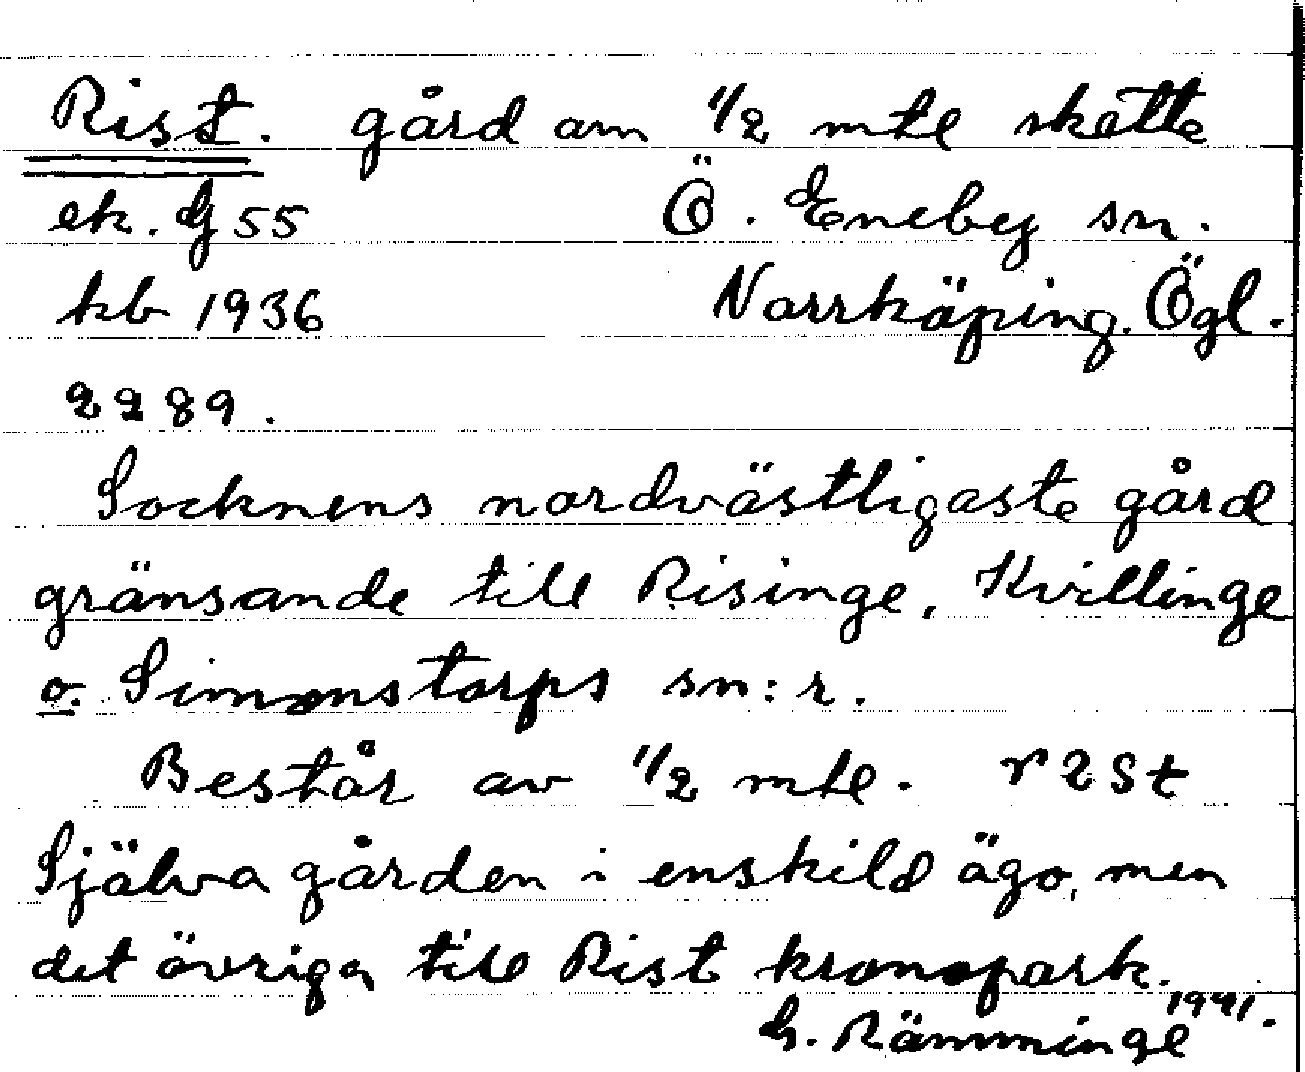 Rist. gård om 1/2 mtl skatte
ek. G 55 Ö. Eneby sn.
kb 1936 Norrköping. Ögl.
2289.
Socknens nordvästligaste gård
gränsande till Risinge, Kvillinge
o. Simonstorps sn:r.
Består av 1/2 mtl. r2St
Själva gården i enskild ägo, men
det övriga till Rist kronopark.
G. Rämminge 1941.